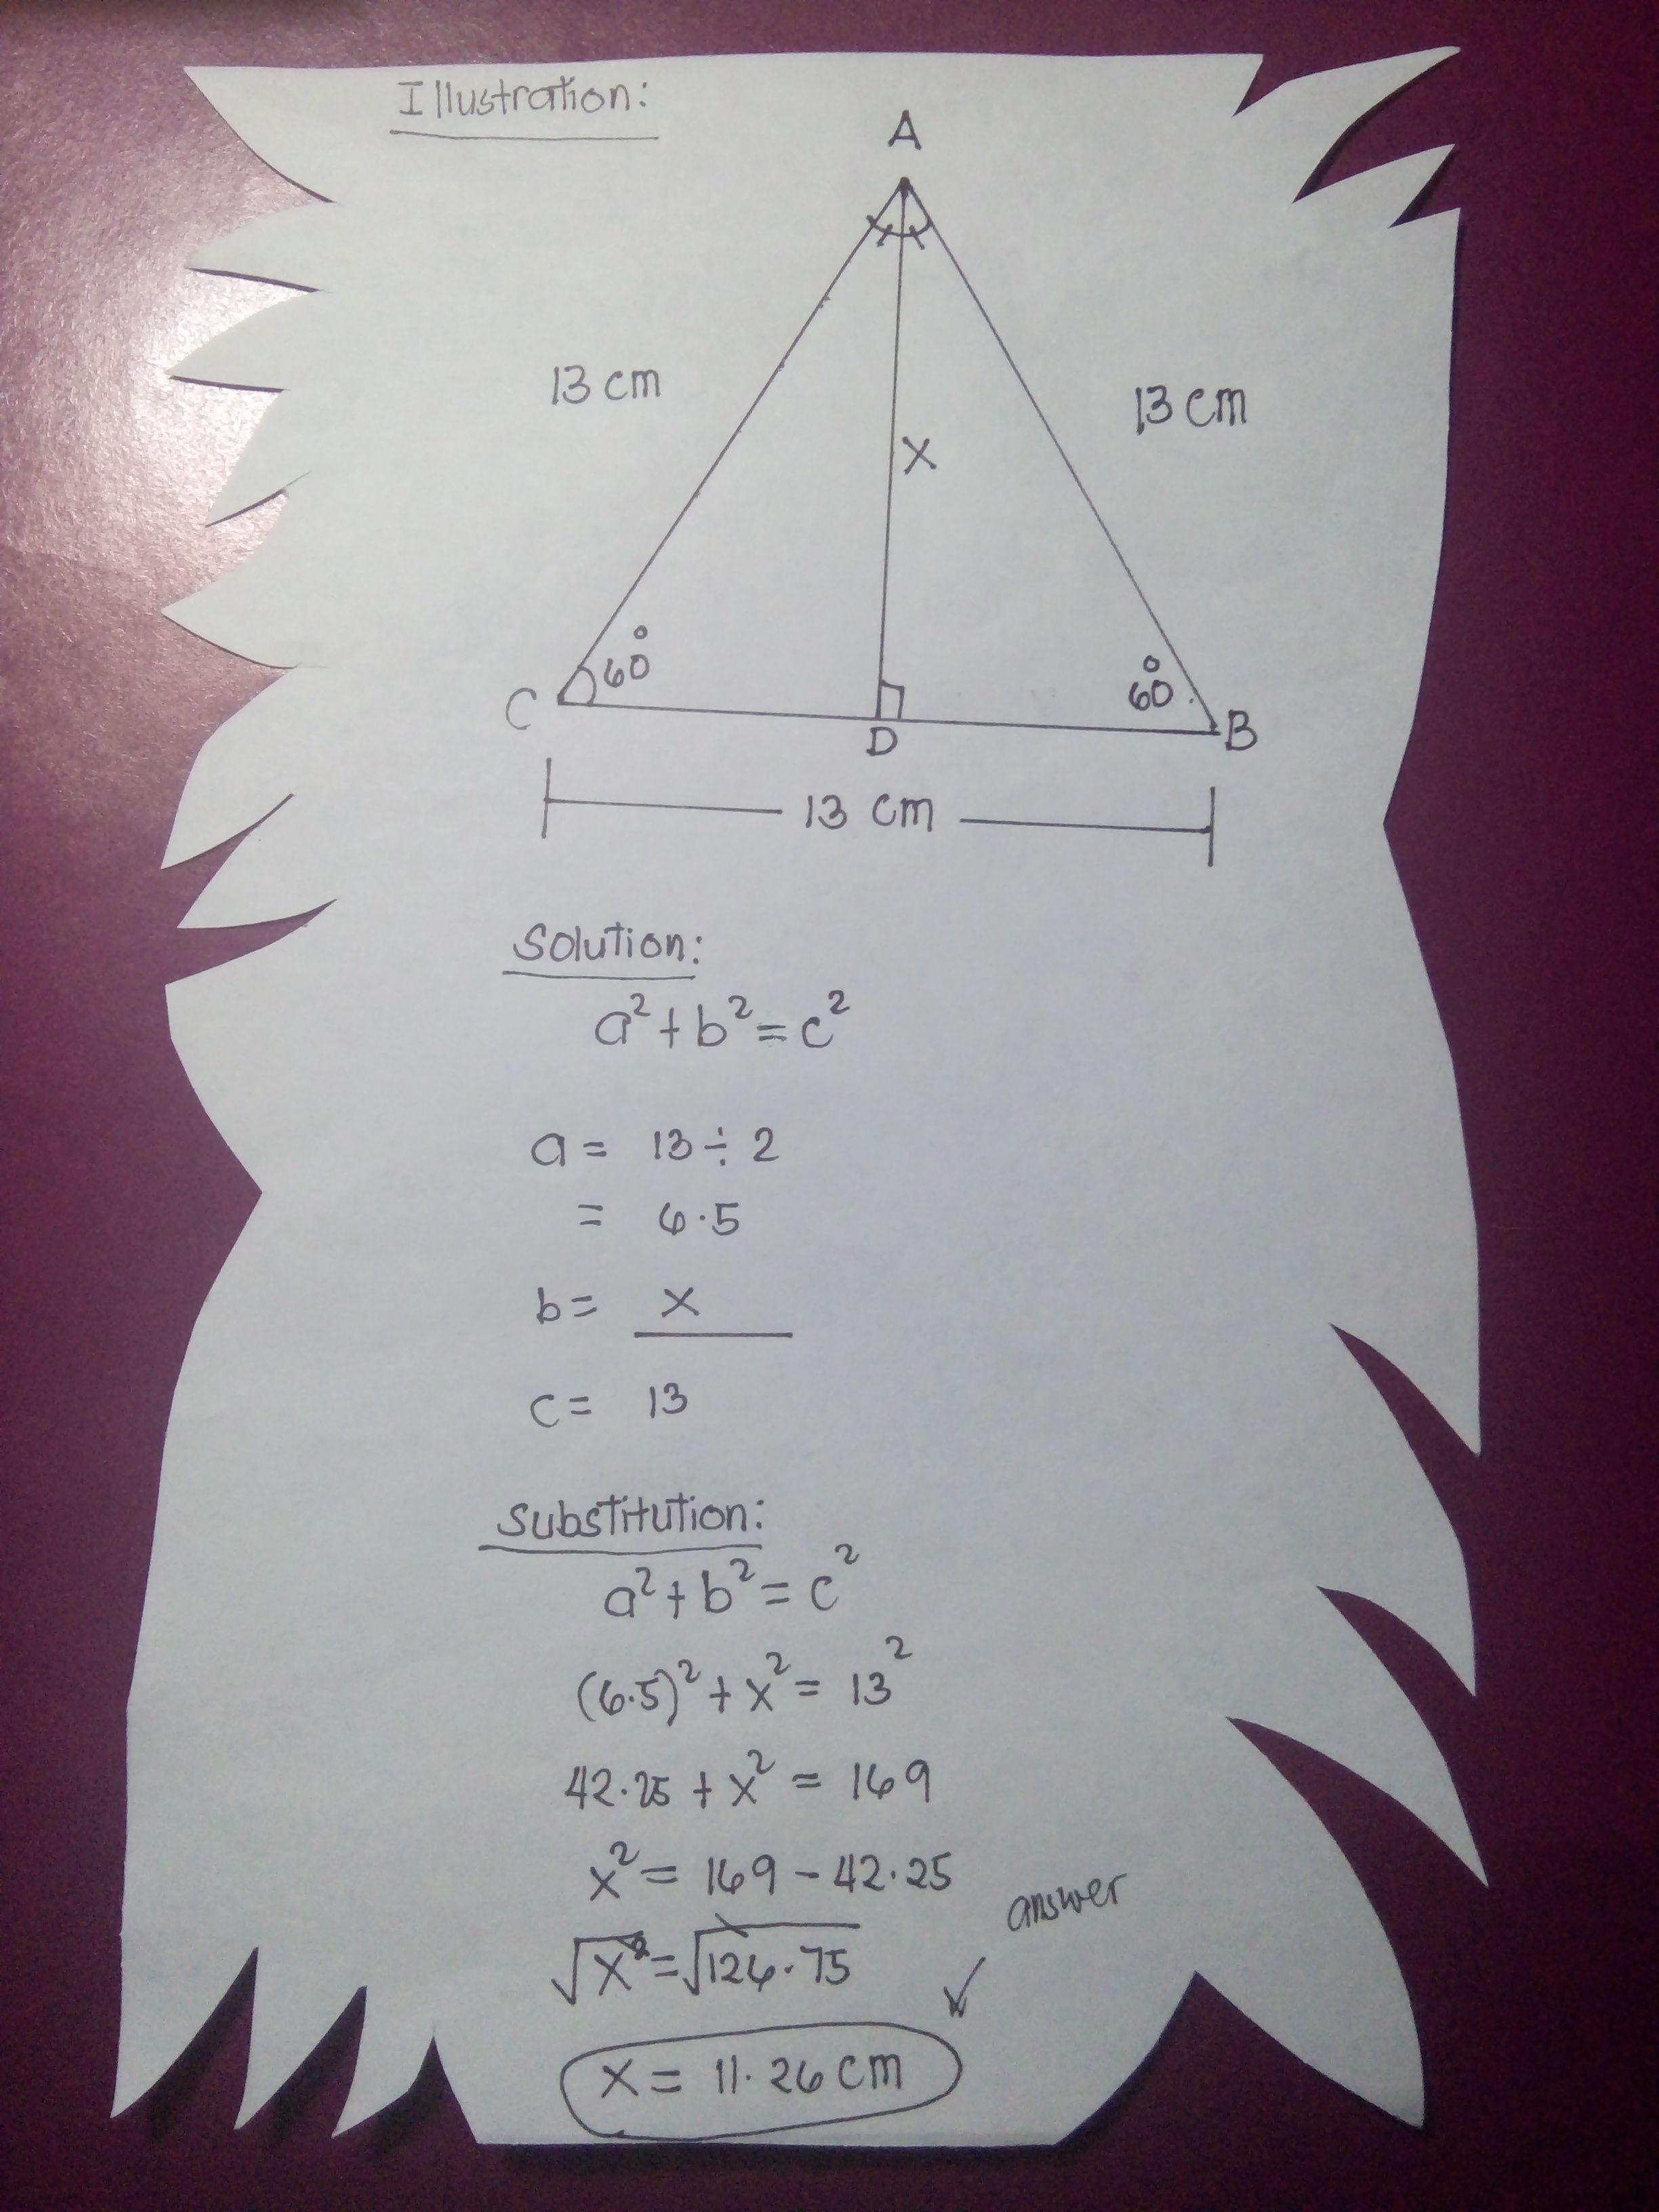 Illustration:
A
13 cm
13 cm
x
60°
60°
C
D
B
13 cm
Solution:
a² + b² = c²
a = 13 ÷ 2
= 6.5
b = x
c = 13
Substitution:
a² + b² = c²
(6.5)² + x² = 13²
42.25 + x² = 169
x² = 169 - 42.25
√x² = √126.75
answer
x = 11.26 cm